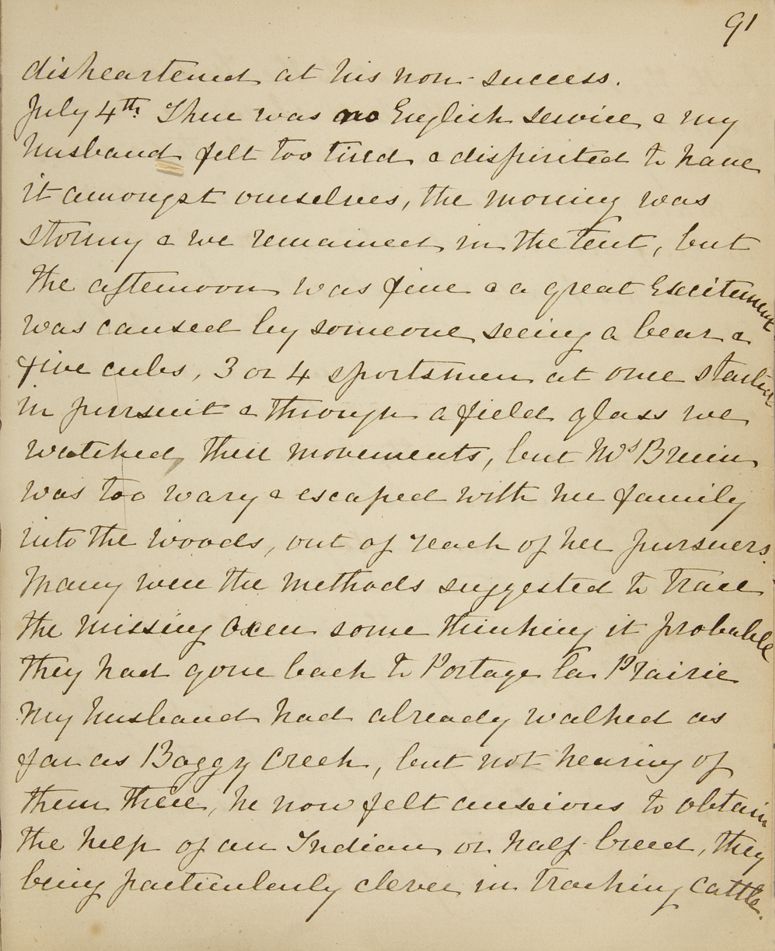 91
disheartened at his non-success.
July 4th. There was no English service & my
husband felt too tired & dispirited to have
it amongst ourselves, the morning was
stormy & we remained in the tent, but
the afternoon was fine & a great Excitement
was caused by someone seeing a bear &
five cubs, 3 or 4 sportsmen at once started
in pursuit & through a field glass we
watched their movements, but Mrs Bruin
was too wary & escaped with her family
into the woods, out of reach of her pursuers.
Many were the methods suggested to trace
the missing Oxen some thinking it probable
they had gone back to Portage la Prairie
My husband had already walked as
far as Boggy Creek, but not hearing of
them there, he now felt anxious to obtain
the help of an Indian or half-breed, they
being particularly clever in tracking cattle.